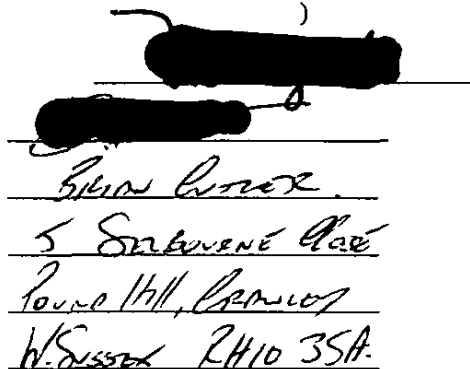 Brian Cutler.
5 Selbourne Close
Pound Hill, Crawley
W. Sussex RH10 3SA.